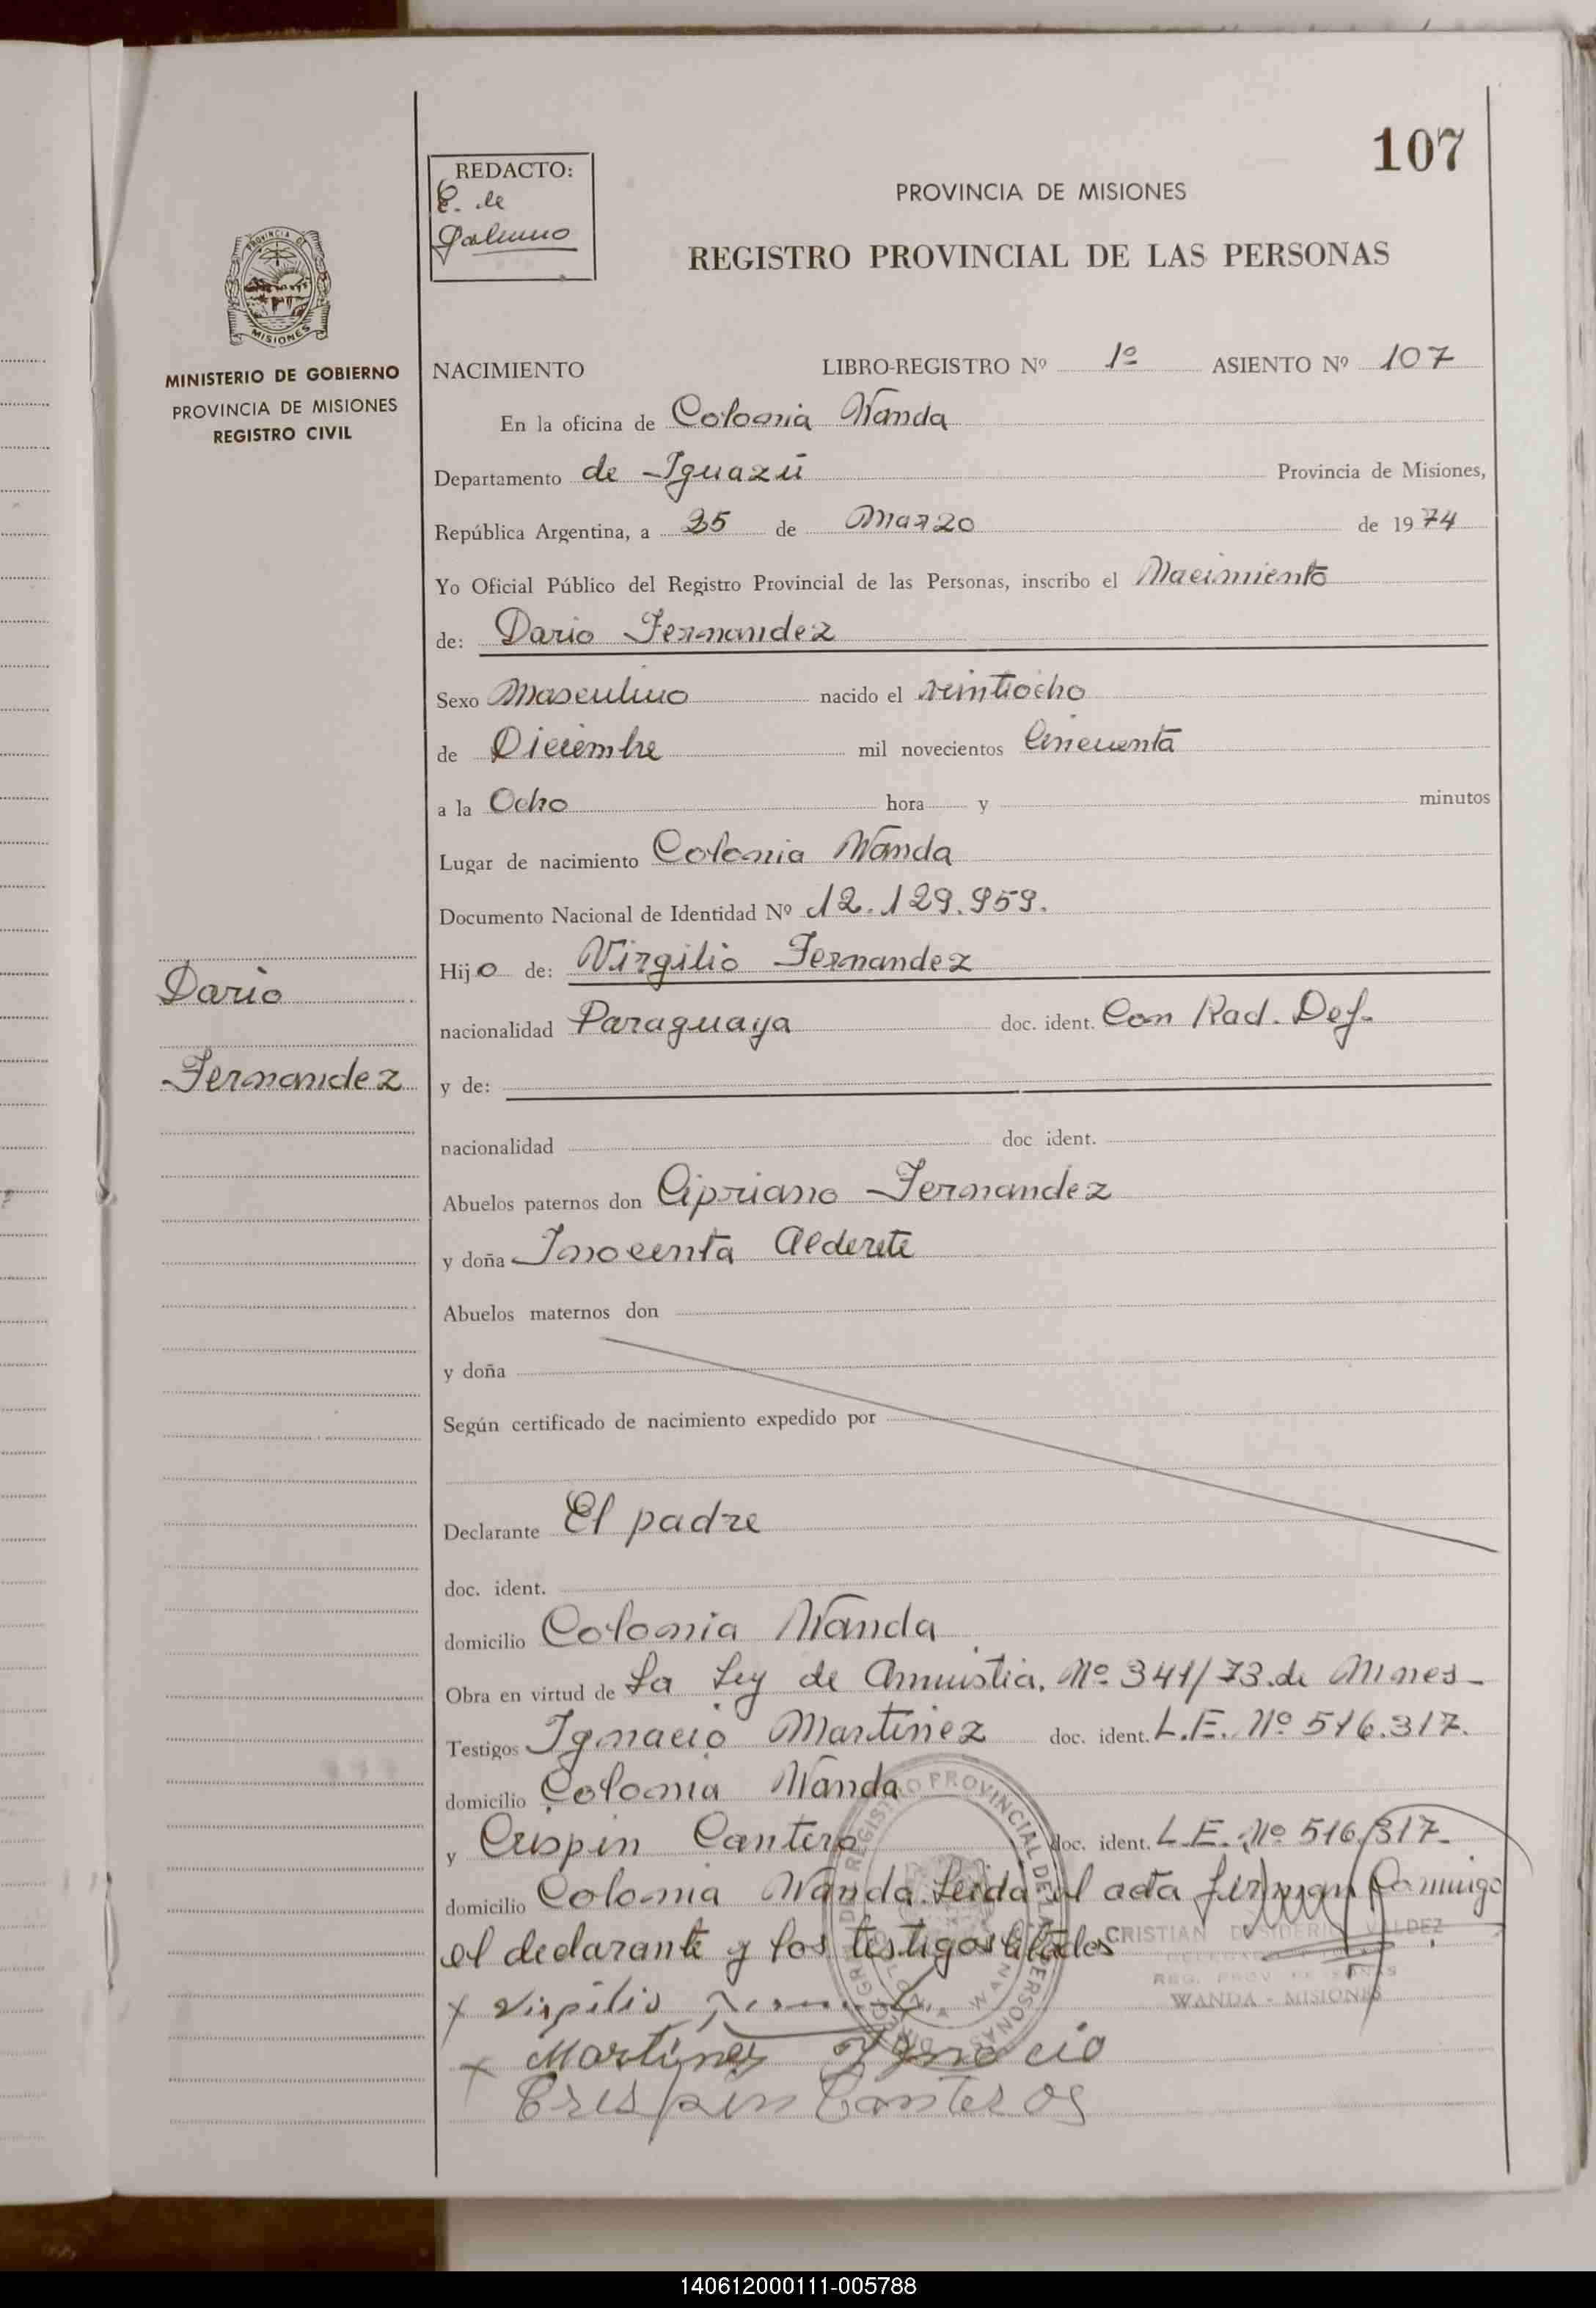 107
REDACTO:
E. de
PROVINCIA DE MISIONES
REGISTRO PROVINCIAL DE LAS PERSONAS
PROVINCIA DE
MISIONES
MINISTERIO DE GOBIERNO
PROVINCIA DE MISIONES
REGISTRO CIVIL
Dario
Fernandez
NACIMIENTO LIBRO-REGISTRO Nº 1º ASIENTO Nº 107
En la oficina de Colonia Wanda
Departamento de Iguazú Provincia de Misiones,
República Argentina, a 25 de Marzo de 1974
Yo Oficial Público del Registro Provincial de las Personas, inscribo el Nacimiento
de: Dario Fernandez
Sexo Masculino nacido el veintiocho
de Diciembre mil novecientos Cincuenta
a la Ocho hora y minutos
Lugar de nacimiento Colonia Wanda
Documento Nacional de Identidad Nº 12.129.959.
Hijo de: Virgilio Fernandez
nacionalidad Paraguaya doc. ident. Con Rad. Def.
y de:
nacionalidad doc ident.
Abuelos paternos don Cipriano Fernandez
y doña Inocenta Alderete
Abuelos maternos don
y doña
Según certificado de nacimiento expedido por
Declarante El padre
doc. ident.
domicilio Colonia Wanda
Obra en virtud de La Ley de Amnistia. Nº 341/73.de Mnes-
Testigos Ignacio Martinez doc. ident. L.E. Nº 516.317.
domicilio Colonia Wanda
y Crispin Cantero doc. ident. L.E. Nº 516.317-
domicilio Colonia Wanda Leida el acta firman Conmigo
el declarante y los testigos citados
REGISTRO PROVINCIAL DE LAS PERSONAS
CRISTIAN DESIDERIO VALDEZ
WANDA - MISIONES
x Virgilio
x Martinez Ygnacio
Crespin Canteros
140612000111-005788